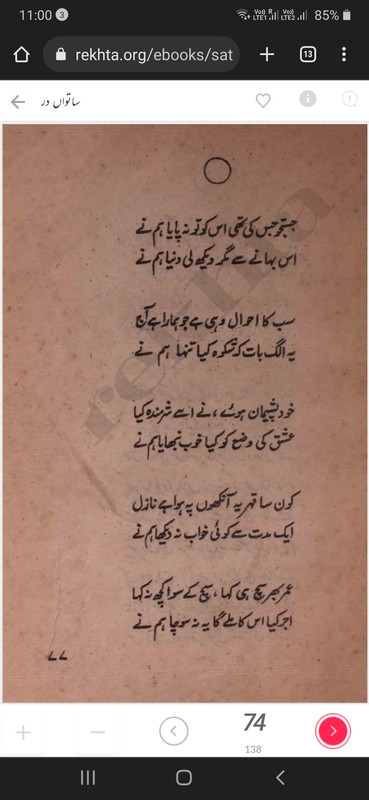 11:00 3 Vo) R Vo) LTE1 LTE2 85%
rekhta.org/ebooks/sat 13
ساتواں در
rekhta
جستجو جس کی تھی اس کو تو نہ پایا ہم نے
اس بہانے سے مگر دیکھ لی دنیا ہم نے
سب کا احوال وہی ہے جو ہمارا ہے آج
یہ الگ بات کہ شکوہ کیا تنہا ہم نے
خود پشیمان ہوئے، نے اسے شرمندہ کیا
عشق کی وضع کو کیا خوب نبھایا ہم نے
کون سا قہر یہ آنکھوں پہ ہوا ہے نازل
ایک مدت سے کوئی خواب نہ دیکھا ہم نے
عمر بھر سچ ہی کہا، سچ کے سوا کچھ نہ کہا
اجر کیا اس کا ملے گا یہ نہ سوچا ہم نے
۷۷
74
138